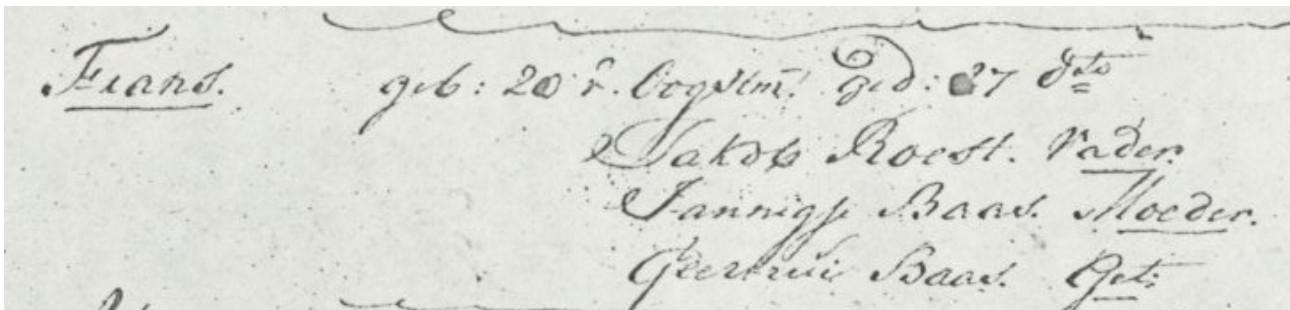 Frans. geb: 20 r. Oogstm: ged: 27 dto
Jakob Roest. Vader.
Jannigje Baas. Moeder.
Geertrui Baas. Get: